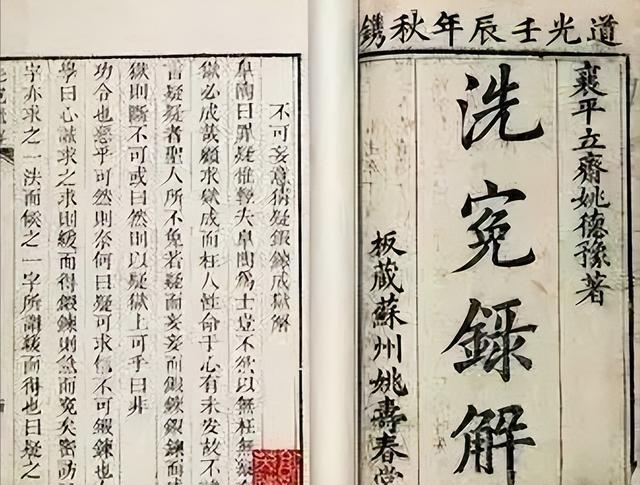 道光壬辰年秋鐫
襄平立齋姚德豫著
洗冤錄解
板藏蘇州姚壽春堂
不可妄意猜疑鍛鍊成獄解
皐陶曰罪疑惟輕夫皐陶為士豈不欲以無枉無
獄必成哉顧求獄成而枉人性命于心有未安故不
書疑疑者聖人所不免若疑而妄妄而鍛鍊鍛鍊而成
獄則斷不可或曰然則以疑獄上可乎曰非
功令也惡乎可然則奈何曰疑可求信不可鍛鍊也
學曰心誠求之求則緩而得鍛鍊則急而冤矣密訪
字亦求之一法而候之一字所謂緩而得也曰疑之